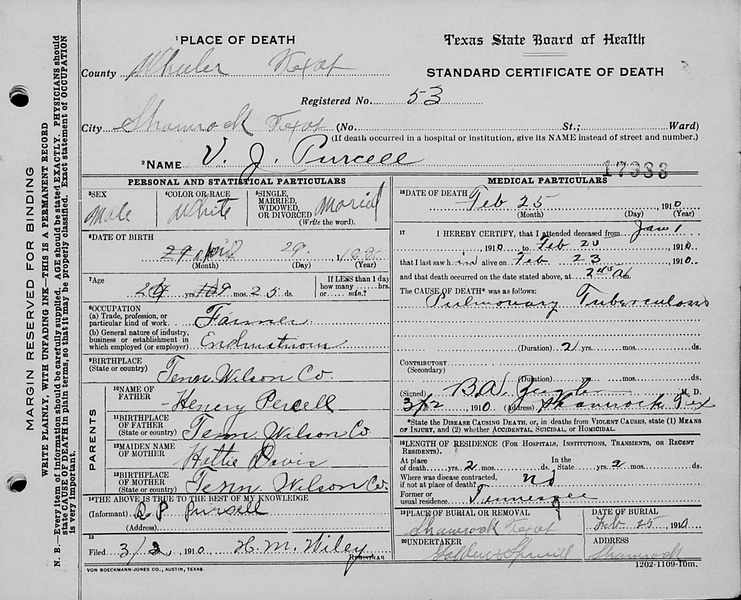 PLACE OF DEATH
Texas State Board of Health
County Wheeler Texas
STANDARD CERTIFICATE OF DEATH
Registered No. 53
City Shamrock Texas (No. St.; Ward)
(If death occurred in a hospital or institution, give its NAME instead of street and number.)
2 NAME V. J. Purcell
17383
PERSONAL AND STATISTICAL PARTICULARS
3 SEX Male
4 COLOR OR RACE White
5 SINGLE, MARRIED, WIDOWED, OR DIVORCED Maried
(Write the word).
6 DATE OF BIRTH
29 29
(Month) (Day) (Year)
7 Age
yrs. mos. 25 ds.
If LESS than 1 day
how many hrs.
or min.?
8 OCCUPATION
(a) Trade, profession, or
particular kind of work Farmer
(b) General nature of industry,
business or establishment in
which employed (or employer)
9 BIRTHPLACE
(State or country) Tenn Wilson Co.
PARENTS
10 NAME OF
FATHER Henery Percell
11 BIRTHPLACE
OF FATHER
(State or country) Tenn Wilson Co
12 MAIDEN NAME
OF MOTHER Hattie Davis
13 BIRTHPLACE
OF MOTHER
(State or country) Tenn Wilson Co.
14 THE ABOVE IS TRUE TO THE BEST OF MY KNOWLEDGE
(Informant) Pursell
(Address)
15
Filed 3/2 1910 H. M. Wiley
REGISTRAR
MEDICAL PARTICULARS
16 DATE OF DEATH Feb 25, 1910
(Month) (Day) (Year)
17 I HEREBY CERTIFY, that I attended deceased from Jan 1
1910 to Feb 1910
that I last saw him alive on Feb 23 1910
and that death occurred on the date stated above, at
The CAUSE OF DEATH* was as follows:
Pulmonary Tuberculosis
(Duration) 2 yrs. mos. ds.
CONTRIBUTORY
(Secondary)
(Duration) yrs. mos. ds.
(Signed) B.A. M. D.
3/2 1910 (Address) Shamrock Tex
*State the DISEASE CAUSING DEATH, or, in deaths from VIOLENT CAUSES, state (1) MEANS
OF INJURY, and (2) whether ACCIDENTAL, SUICIDAL, or HOMICIDAL.
18 LENGTH OF RESIDENCE (FOR HOSPITALS, INSTITUTIONS, TRANSIENTS, OR RECENT
RESIDENTS).
At place
of death yrs. 2 mos. ds.
In the
State, yrs. 2 mos. ds.
Where was disease contracted,
if not at place of death? no
Former or
usual residence Tennessee
19 PLACE OF BURIAL OR REMOVAL
Shamrock Texas
DATE OF BURIAL
Feb. 25 1910
20 UNDERTAKER
ADDRESS
Shamrock
VON BOECKMANN-JONES CO., AUSTIN, TEXAS.
1202-1109-10m.
MARGIN RESERVED FOR BINDING
WRITE PLAINLY, WITH UNFADING INK—THIS IS A PERMANENT RECORD
N. B.—Every item of information should be carefully supplied. AGE should be stated EXACTLY. PHYSICIANS should
state CAUSE OF DEATH in plain terms, so that it may be properly classified. Exact statement of OCCUPATION
is very important.